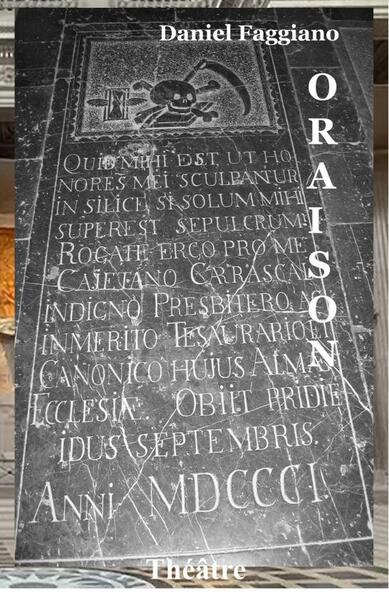 Daniel Faggiano
ORAISON
QUID MIHI EST, UT HO
NORES MEI SCULPANTUR
IN SILICE, SI SOLUM MIHI
SUPEREST SEPULCRUM?
ROGATE ERGO PRO ME
CAIETANO CARRASCAL
INDIGNO PRESBITERO, AC
INMERITO TESAURARIO ET
CANONICO HUJUS ALMÆ
ECCLESIÆ. OBIIT PRIDIE
IDUS SEPTEMBRIS.
ANNI MDCCCI.
Théâtre